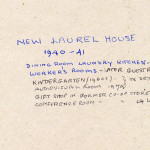 NEW LAUREL HOUSE
1940-41
DINING ROOM LAUNDRY KITCHEN-
WORKER'S ROOMS - LATER GUEST
KINDERGARTEN (1960s)
AUDIOVISUAL ROOMS 1970s
GIFT SHOP IN FORMER CO-OP STORE
CONFERENCE ROOM "